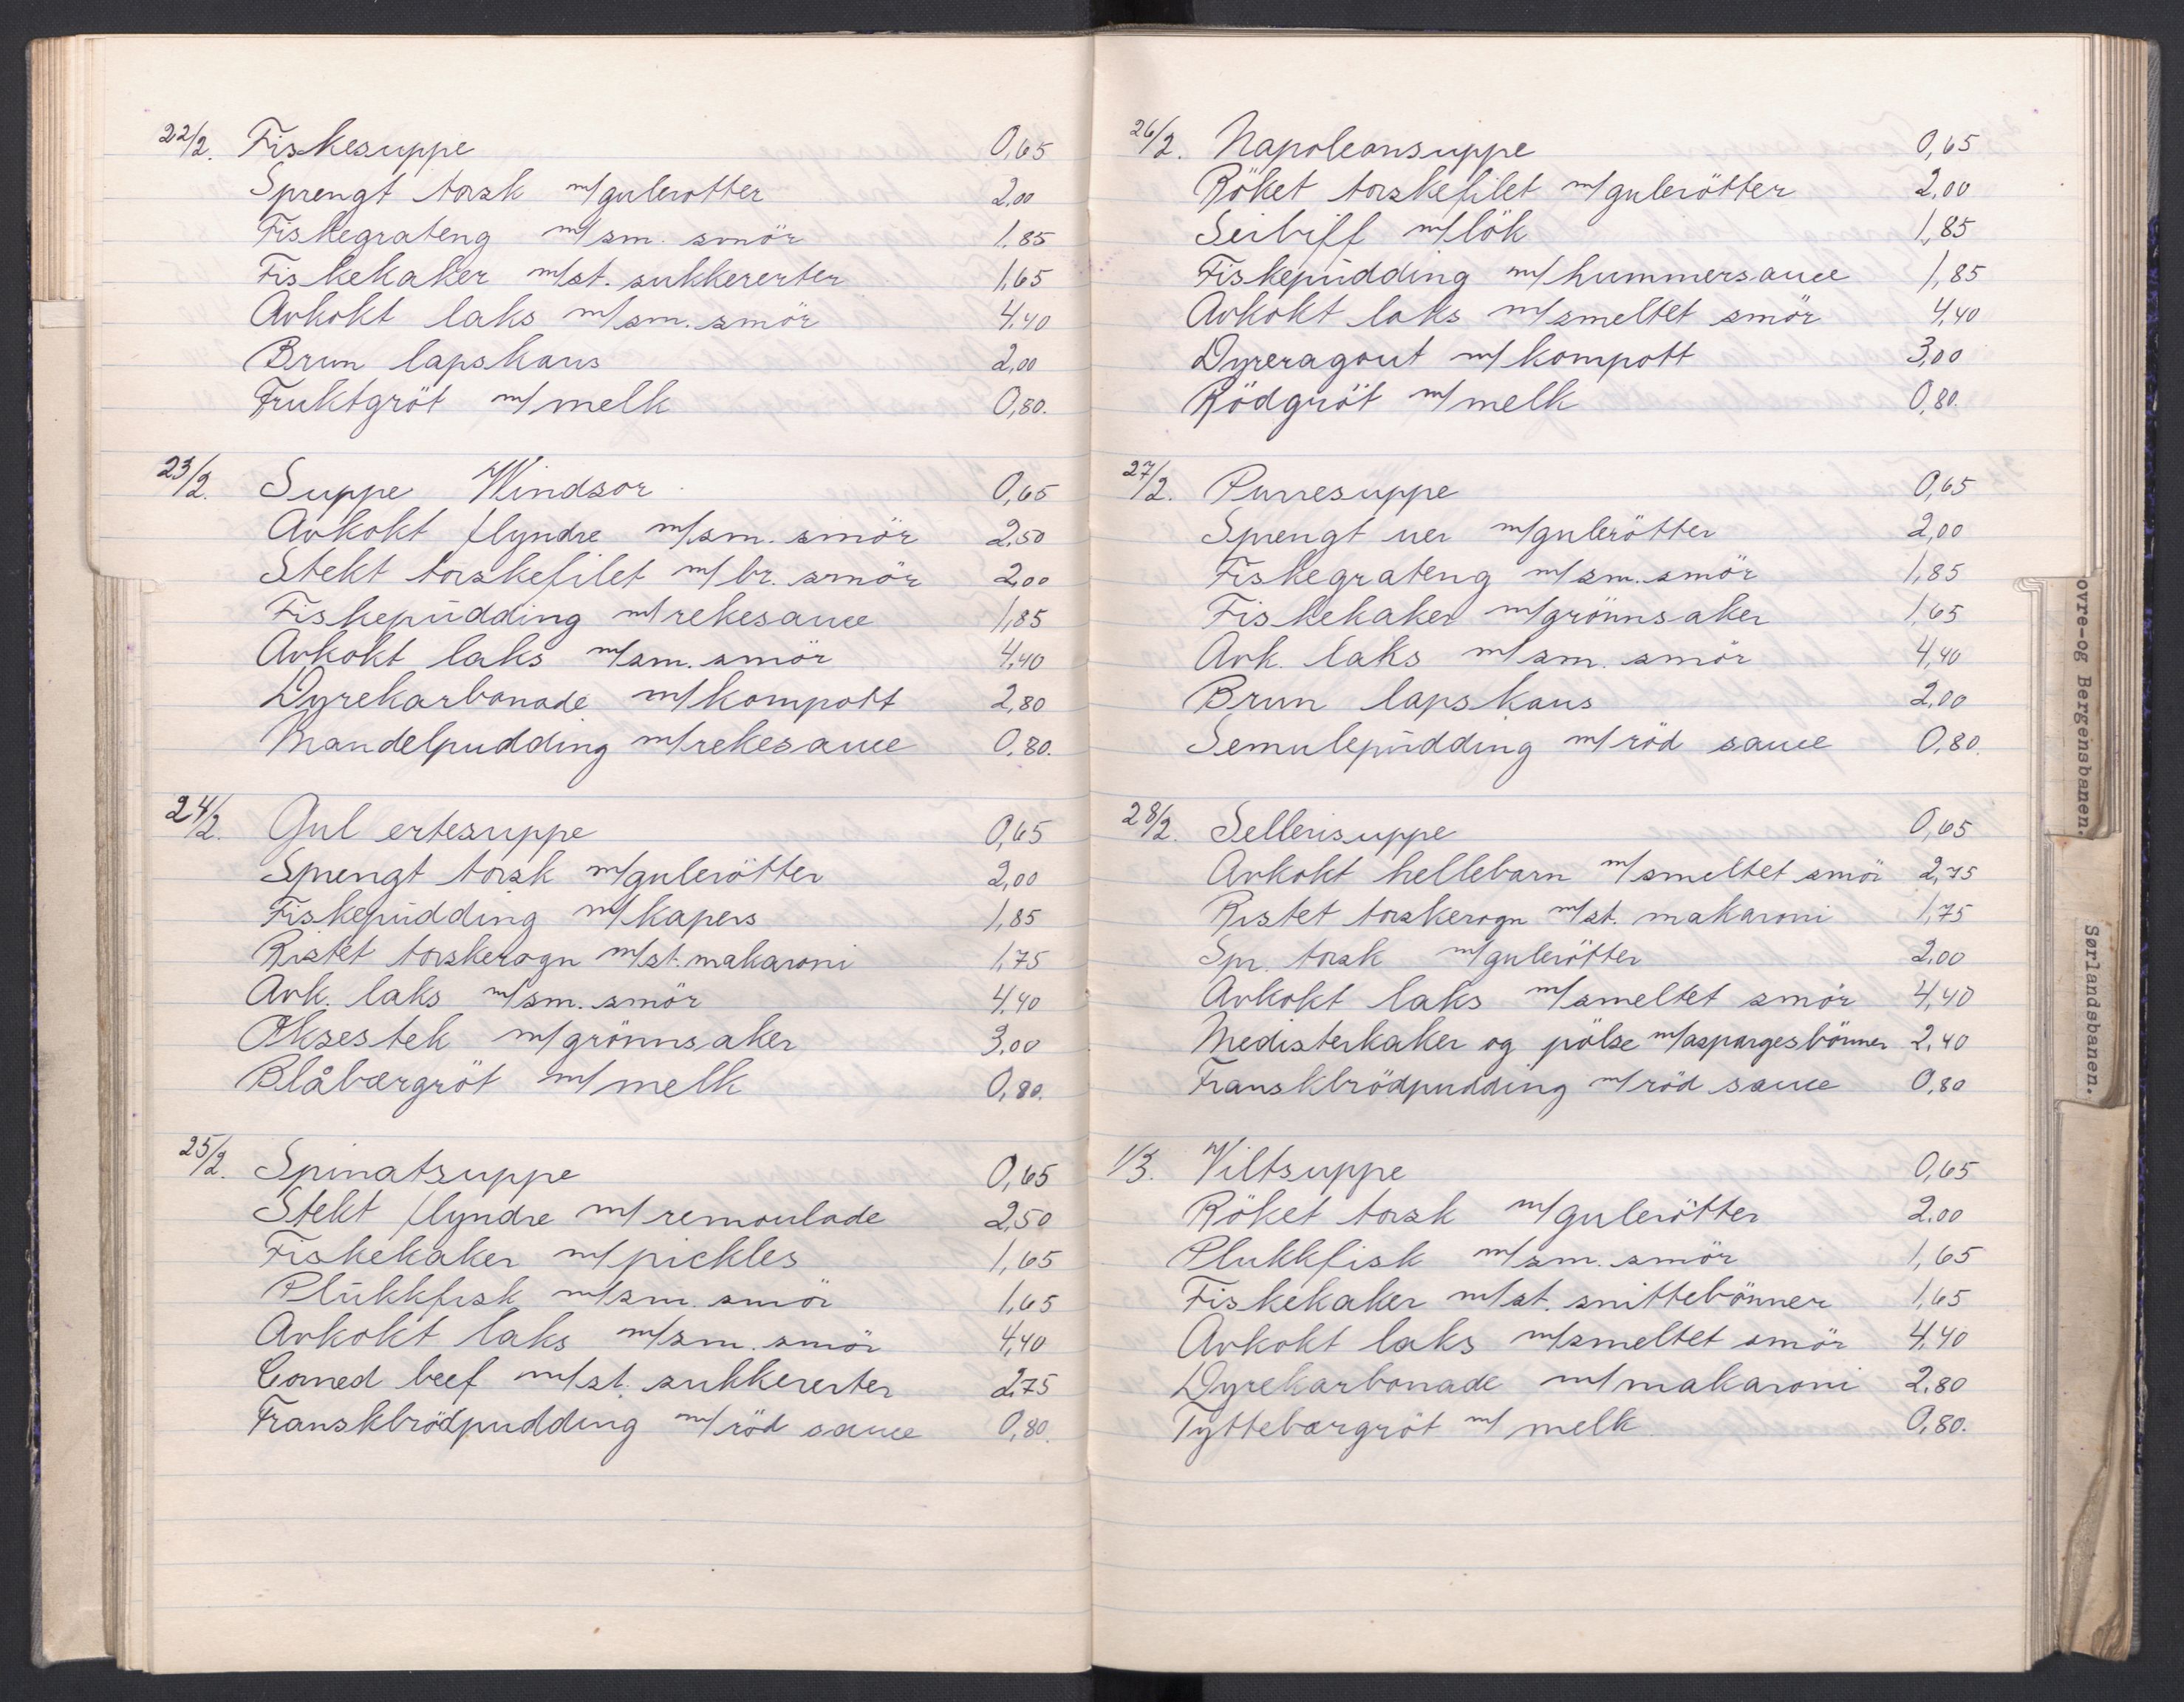 22/2. Fiskesuppe 0,65
Sprengt torsk m/gulerotter 2,00
Fiskegrateng m/sm. smör 1,85
Fiskekaker m/st. sukkererter 1,65
Avkokt laks m/sm. smör 4,40
Brun lapskaus 2,00
Fruktgröt m/melk 0,80.
23/2. Suppe Windsor 0,65
Avkokt flyndre m/sm. smör 2,50
Stekt torskefilet m/br. smör 2,00
Fiskepudding m/rekesauce 1,85
Avkokt laks m/sm. smör 4,40
Dyrekarbonade m/kompott 2,80
Mandelpudding m/rekesauce 0,80.
24/2. Gul ertesuppe 0,65
Sprengt torsk m/gulerötter 2,00
Fiskepudding m/kapers 1,85
Ristet torskerogn m/st. makaroni 1,75
Avk. laks m/sm. smör 4,40
Oksestek m/grönnsaker 3,00
Blåbærgröt m/melk 0,80.
25/2. Spinatsuppe 0,65
Stekt flyndre m/remoulade 2,50
Fiskekaker m/pickles 1,65
Plukkfisk m/sm. smör 1,65
Avkokt laks m/sm. smör 4,40
Corned beef m/st. sukkererter 2,75
Franskbrödpudding m/röd sauce 0,80.
26/2. Napoleonsuppe 0,65
Röket torskefilet m/gulerötter 2,00
Seibiff m/lök 1,85
Fiskepudding m/hummersauce 1,85
Avkokt laks m/smeltet smör 4,40
Dyreragout m/kompott 3,00
Rödgröt m/melk 0,80.
27/2. Purresuppe 0,65
Sprengt uer m/gulerötter 2,00
Fiskegrateng m/sm. smör 1,85
Fiskekaker m/grönnsaker 1,65
Avk. laks m/sm. smör 4,40
Brun lapskaus 2,00
Semulepudding m/röd sauce 0,80.
28/2. Sellerisuppe 0,65
Avkokt hellebarn m/smeltet smör 2,75
Ristet torskerogn m/st. makaroni 1,75
Spr. torsk m/gulerötter 2,00
Avkokt laks m/smeltet smör 4,40
Medisterkaker og pölse m/aspargesbönner 2,40
Franskbrödpudding m/röd sauce 0,80
1/3. Viltsuppe 0,65
Röket torsk m/gulerötter 2,00
Plukkfisk m/sm. smör 1,65
Fiskekaker m/st. snittebönner 1,65
Avkokt laks m/smeltet smör 4,40
Dyrekarbonade m/makaroni 2,80
Tyttebærgröt m/melk 0,80.
ovre-og Bergensbanen.
Sørlandsbanen.